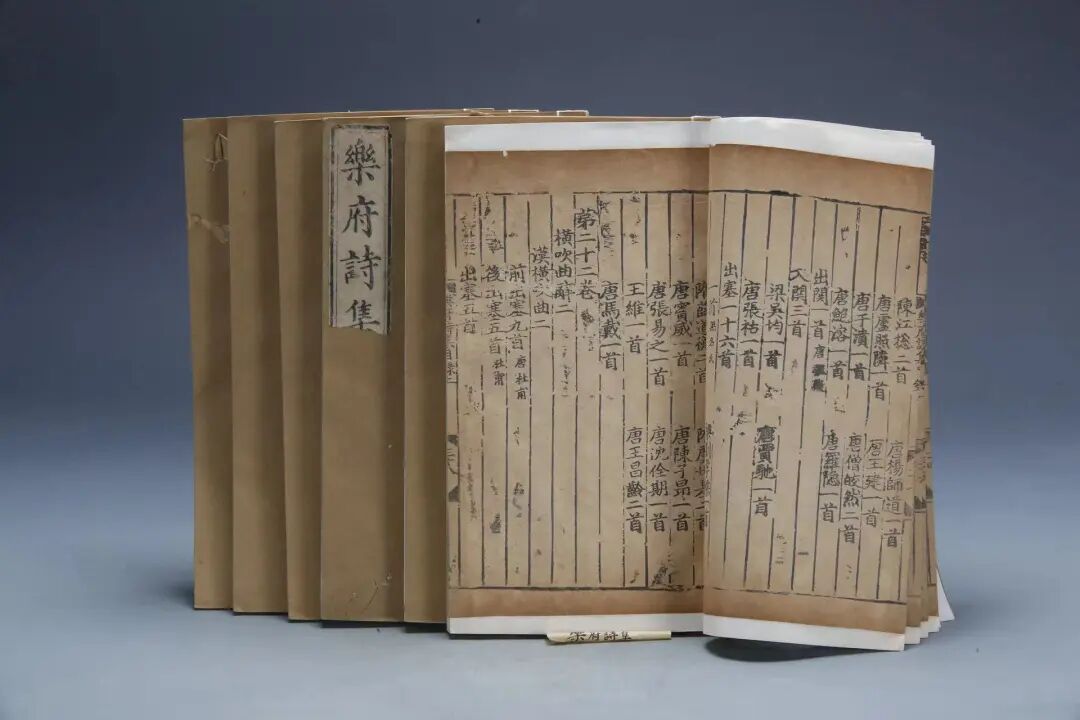 樂府詩集
陳江総二首 唐楊師道一首
唐盧照隣一首 唐王建一首
唐于濆一首 唐僧皎然二首
唐鮑溶一首 唐羅隱一首
出関一首 唐
入関三首
梁吳均一首 唐賈馳一首
唐張祜一首
出塞一十六首
唐竇威一首 唐陳子昂一首
唐張易之一首 唐沈佺期一首
王維一首 唐王昌齡二首
唐馬戴一首
第二十二卷
橫吹曲辭二
漢橫吹曲二
前出塞九首 唐杜甫
後出塞五首 杜甫
出塞五首